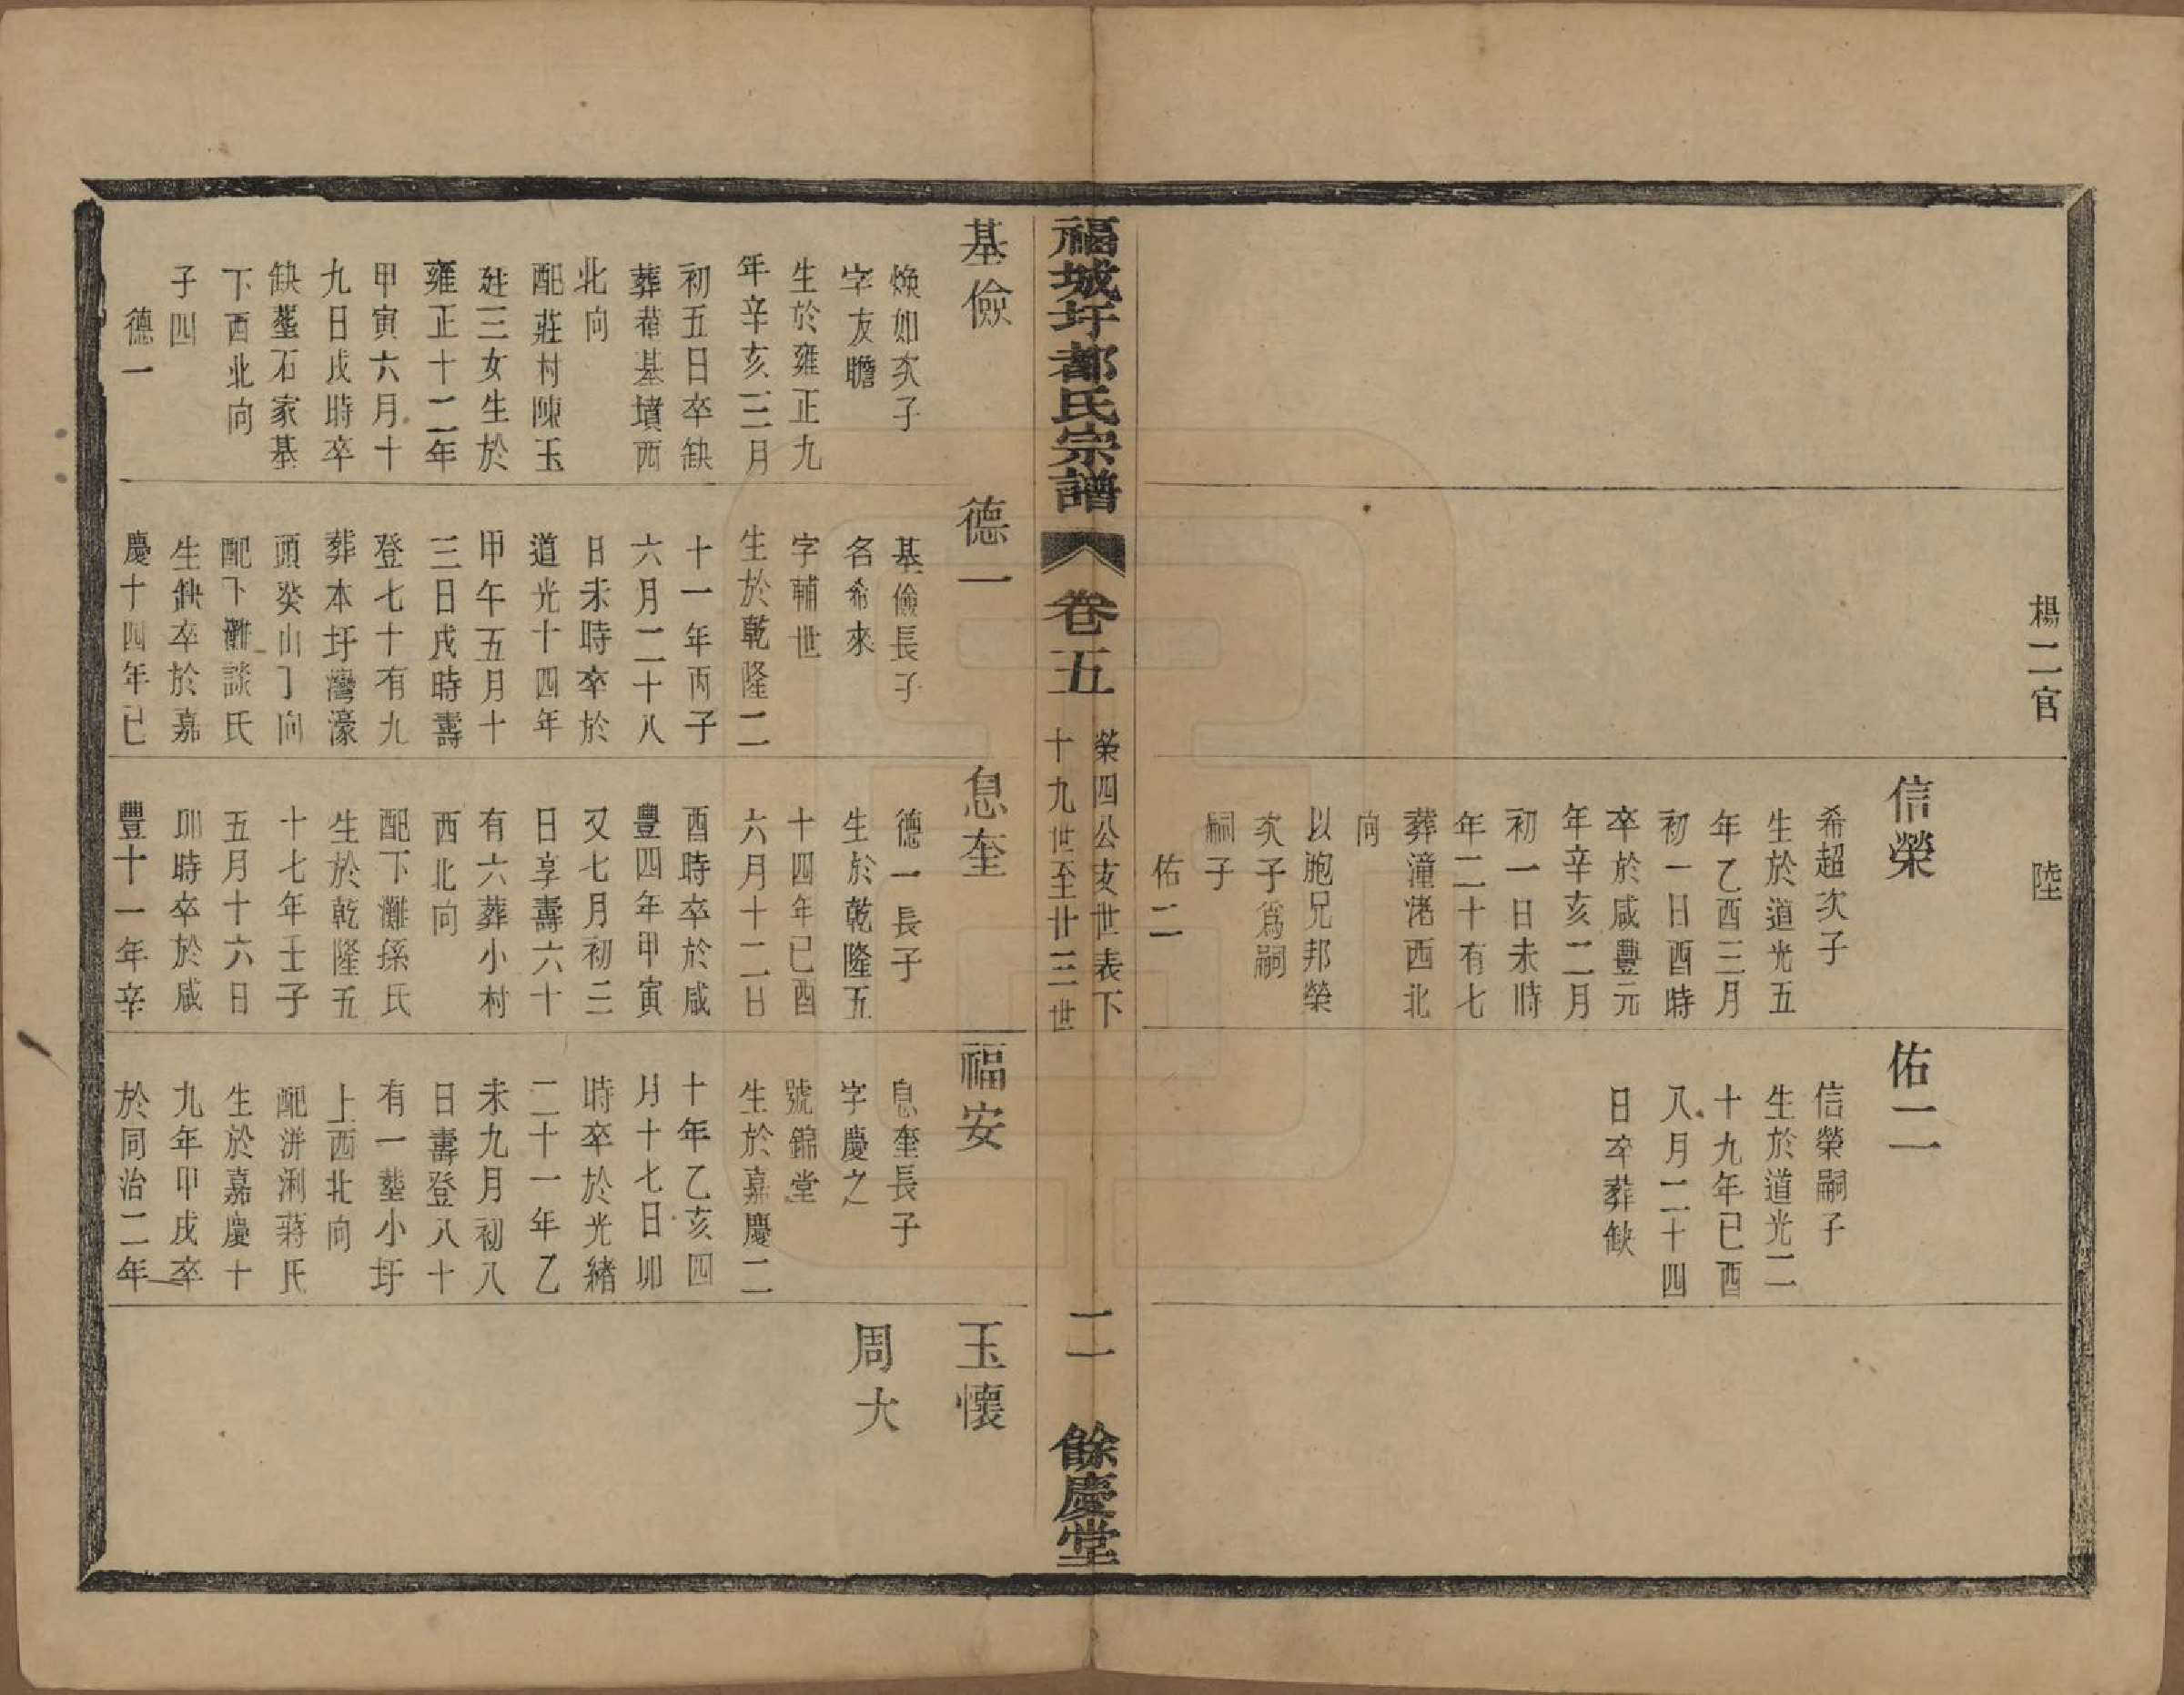 楊二官
陸
信榮
希超次子
生於道光五
年乙酉三月
初一日酉時
卒於咸豐元
年辛亥二月
初一日未時
年二十有七
葬潼渚西北
向
以胞兄邦榮
次子為嗣
嗣子
佑二
佑二
信榮嗣子
生於道光二
十九年己酉
八月二十四
日卒葬缺
福城圩都氏宗譜
卷五
榮四公支世表下
十九世至廿三世
二
餘慶堂
基儉
煥如次子
字友瞻
生於雍正九
年辛亥三月
初五日卒缺
葬舊基墳西
北向
配莊村陳玉
姓三女生於
雍正十二年
甲寅六月十
九日戌時卒
缺塟石家墓
下西北向
子四
德一
德一
基儉長子
名希來
字輔世
生於乾隆二
十一年丙子
六月二十八
日未時卒於
道光十四年
甲午五月十
三日戌時壽
登七十有九
葬本圩灣濠
頭癸山丁向
配下灘談氏
生缺卒於嘉
慶十四年己
息奎
德一長子
生於乾隆五
十四年己酉
六月十二日
酉時卒於咸
豐四年甲寅
又七月初三
日享壽六十
有六葬小村
西北向
配下灘孫氏
生於乾隆五
十七年壬子
五月十六日
卯時卒於咸
豐十一年辛
福安
息奎長子
字慶之
號錦堂
生於嘉慶二
十年乙亥四
月十七日卯
時卒於光緒
二十一年乙
未九月初八
日壽登八十
有一塟小圩
上西北向
配洴浰蔣氏
生於嘉慶十
九年甲戌卒
於同治二年
玉懷
周大